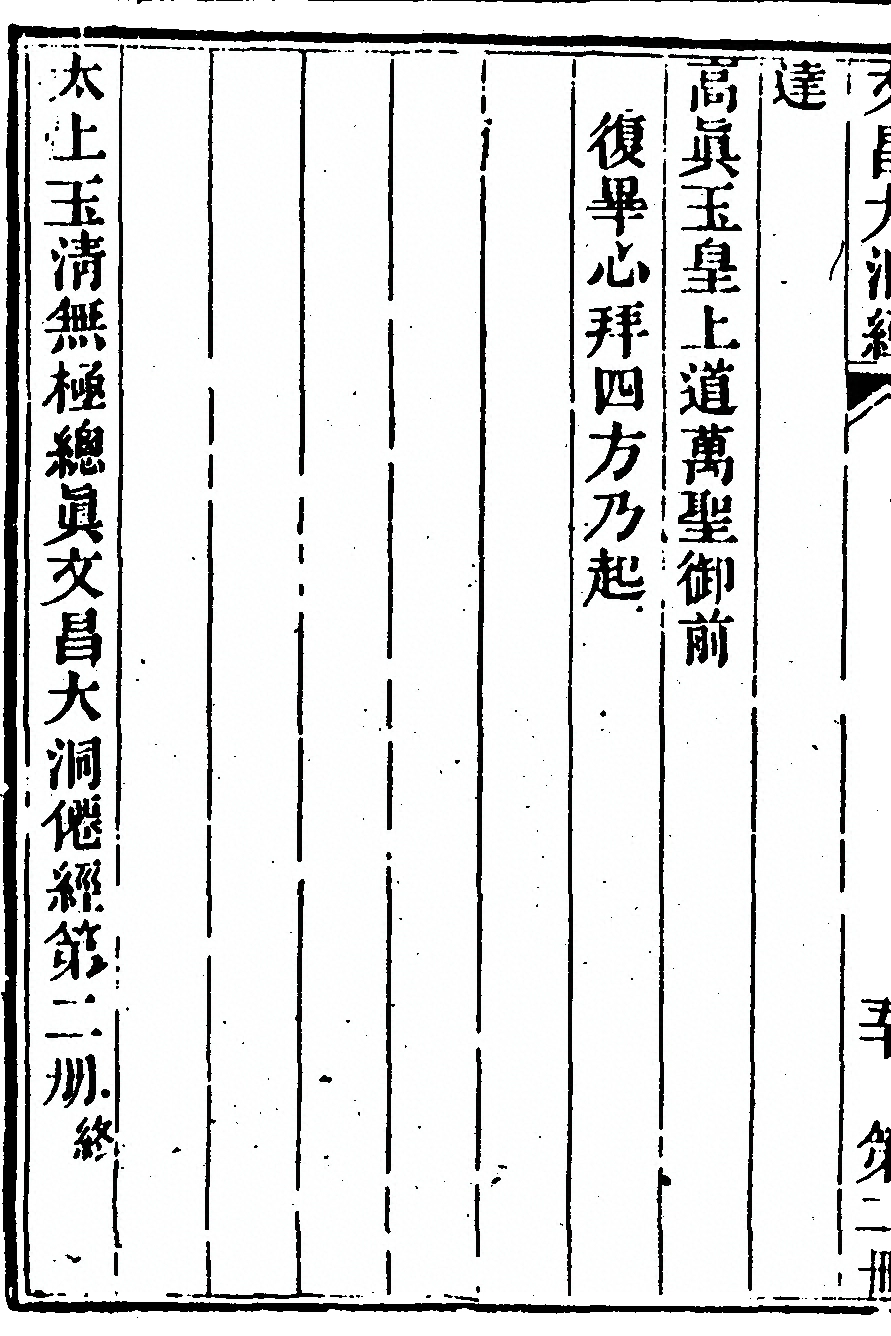 文昌大洞經
五十 第二冊
達
高眞玉皇上道萬聖御前
復畢心拜四方乃起
太上玉清無極總眞文昌大洞僊經第二册終